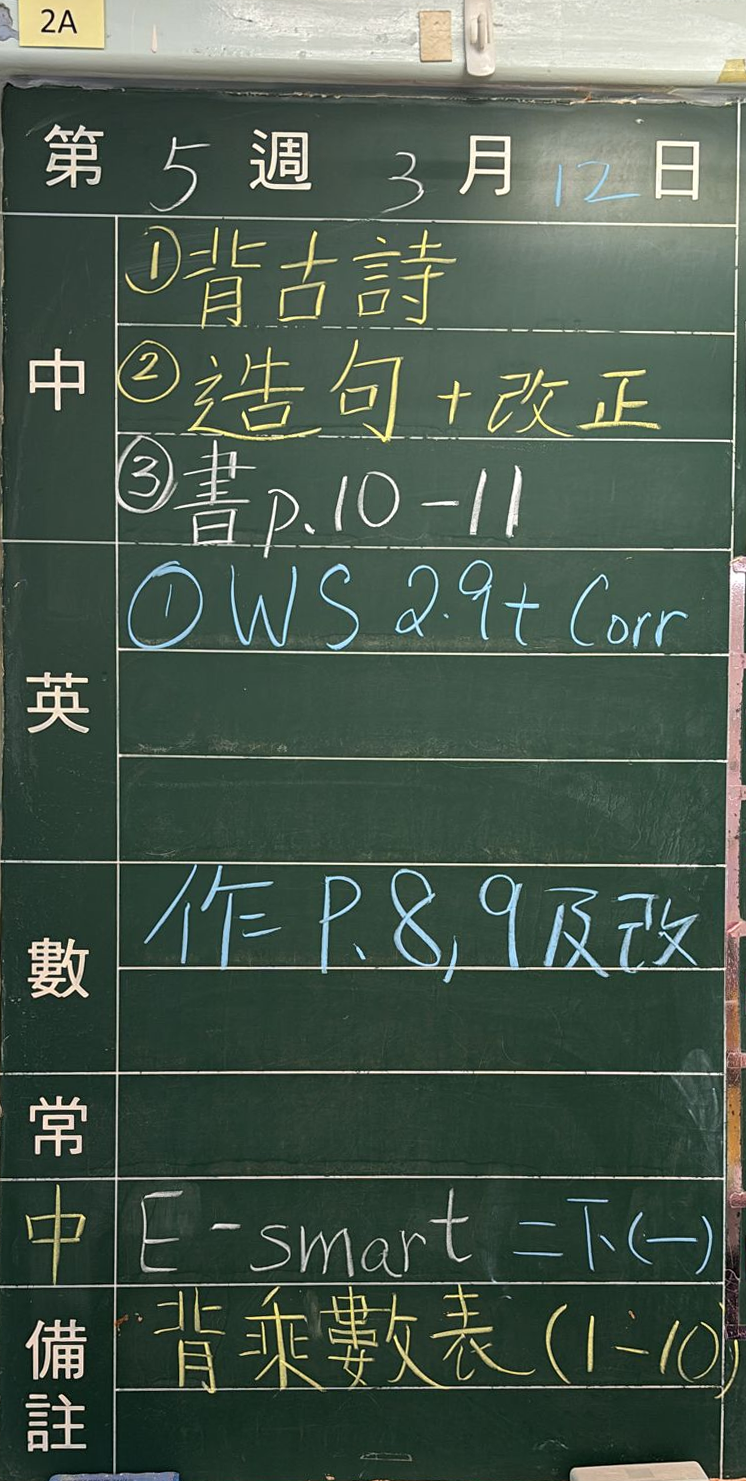 2A
第 5 週 3 月 12 日
中
①背古詩
②造句+改正
③書p.10-11
英
①WS 2.9+ Corr
數
作 P.8,9及改
常
中 E-smart 二下(一)
備註
背乘數表(1-10)